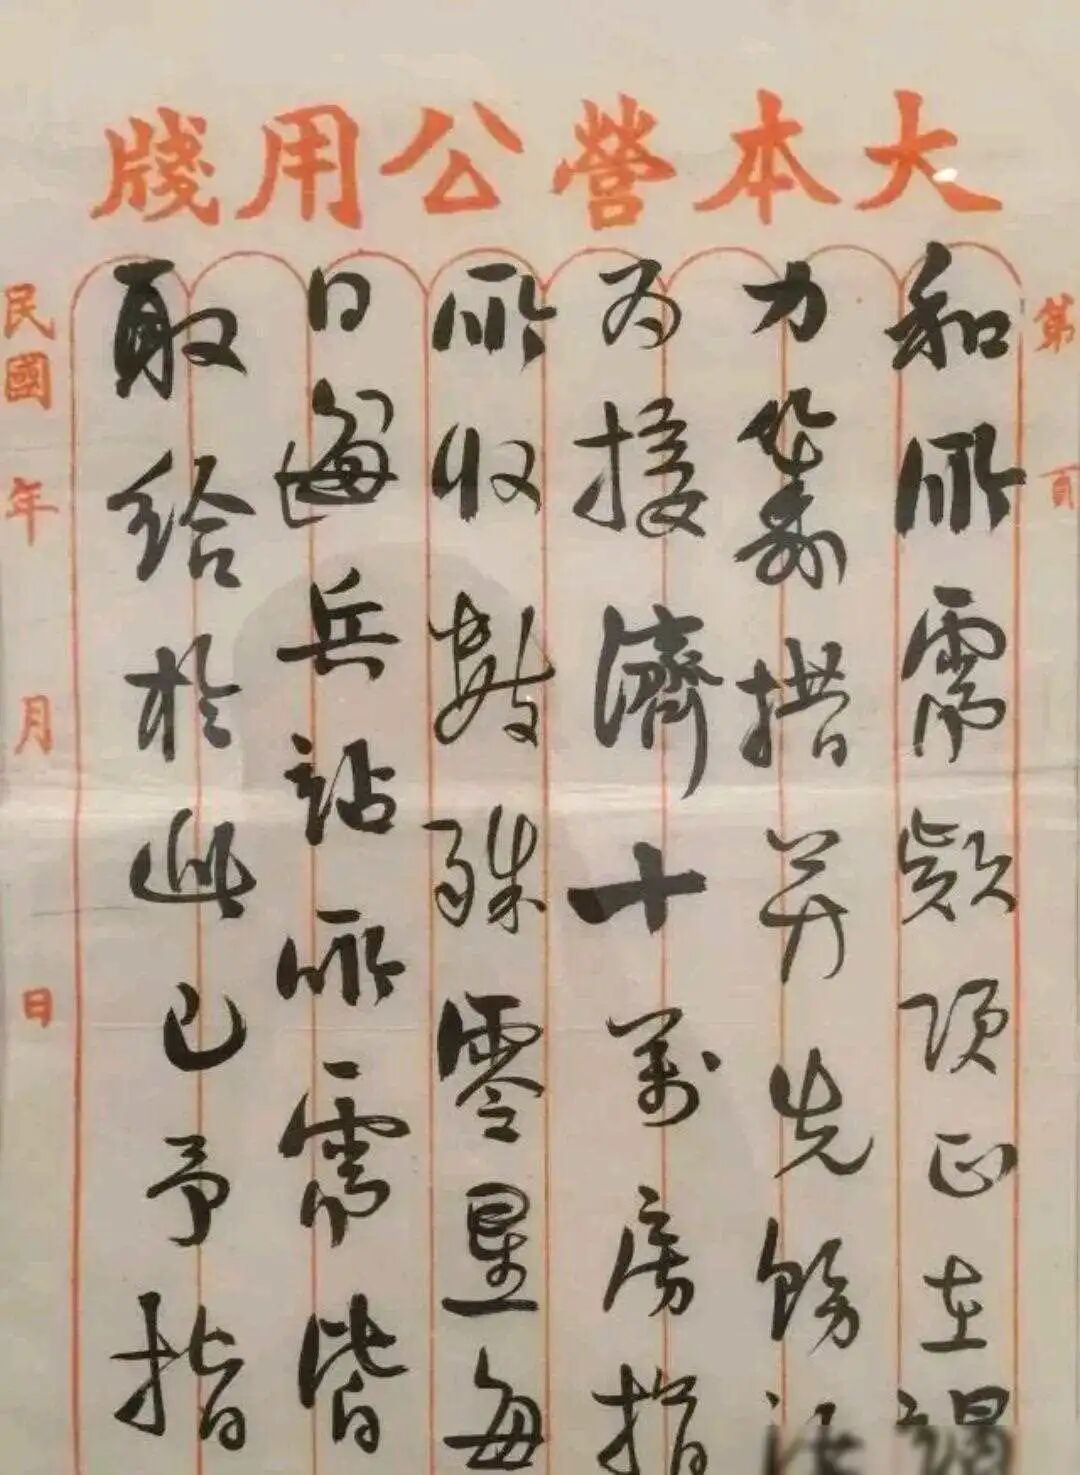 大本營公用牋
第 頁
和所需款項正在竭
力籌措先飭
為接濟十萬房捐
所收數殊零星每
日兵站所需皆
取給於此已予指
民國 年 月 日